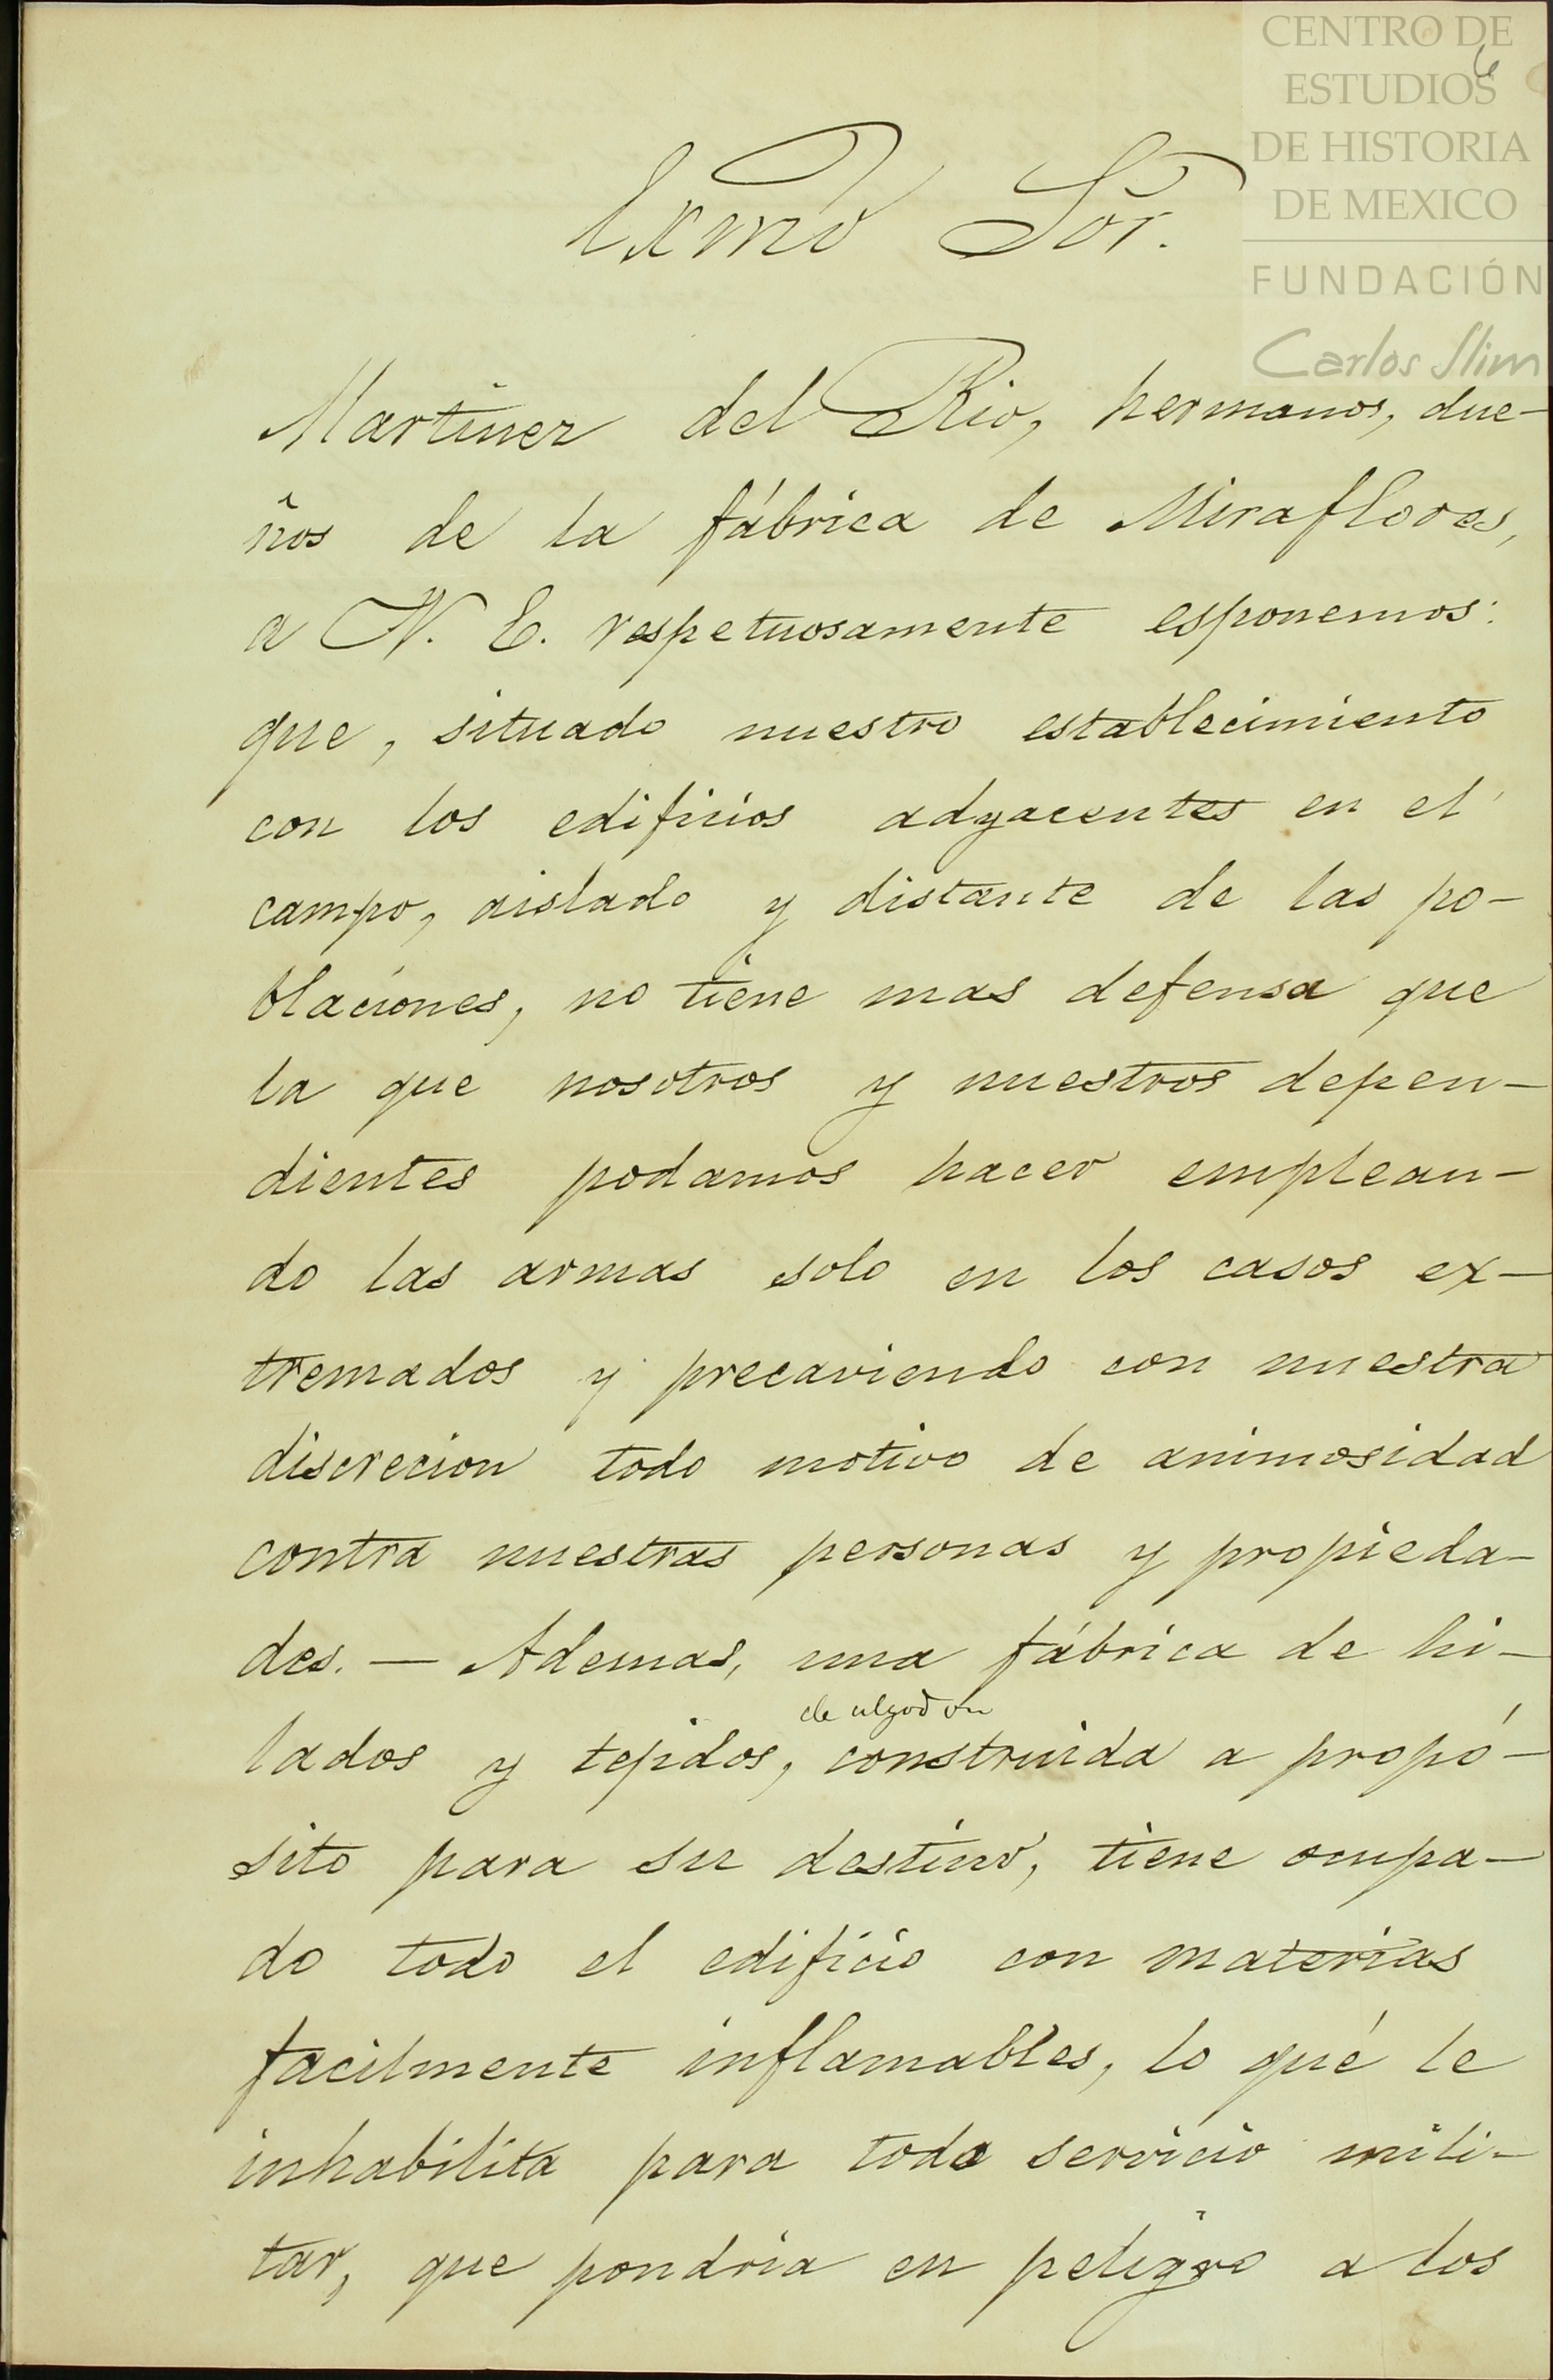 CENTRO DE
ESTUDIOS
DE HISTORIA
DE MEXICO
FUNDACIÓN
Carlos Slim
6
Exmo Sor.
Martinez del Rio, hermanos, due-
ños de la fábrica de Miraflores,
a V. E. respetuosamente esponemos:
que, situado nuestro establecimiento
con los edificios adyacentes en el
campo, aislado y distante de las po-
blaciones, no tiene mas defensa que
la que nosotros y nuestros depen-
dientes podamos hacer emplean-
do las armas solo en los casos ex-
tremados y precaviendo con nuestra
discrecion todo motivo de animosidad
contra nuestras personas y propieda-
des. — Ademas, una fábrica de hi-
de algodon
lados y tejidos, construida a propó-
sito para su destino, tiene ocupa-
do todo el edificio con materias
facilmente inflamables, lo qué le
inhabilita para todo servicio mili-
tar, que pondria en peligro a los